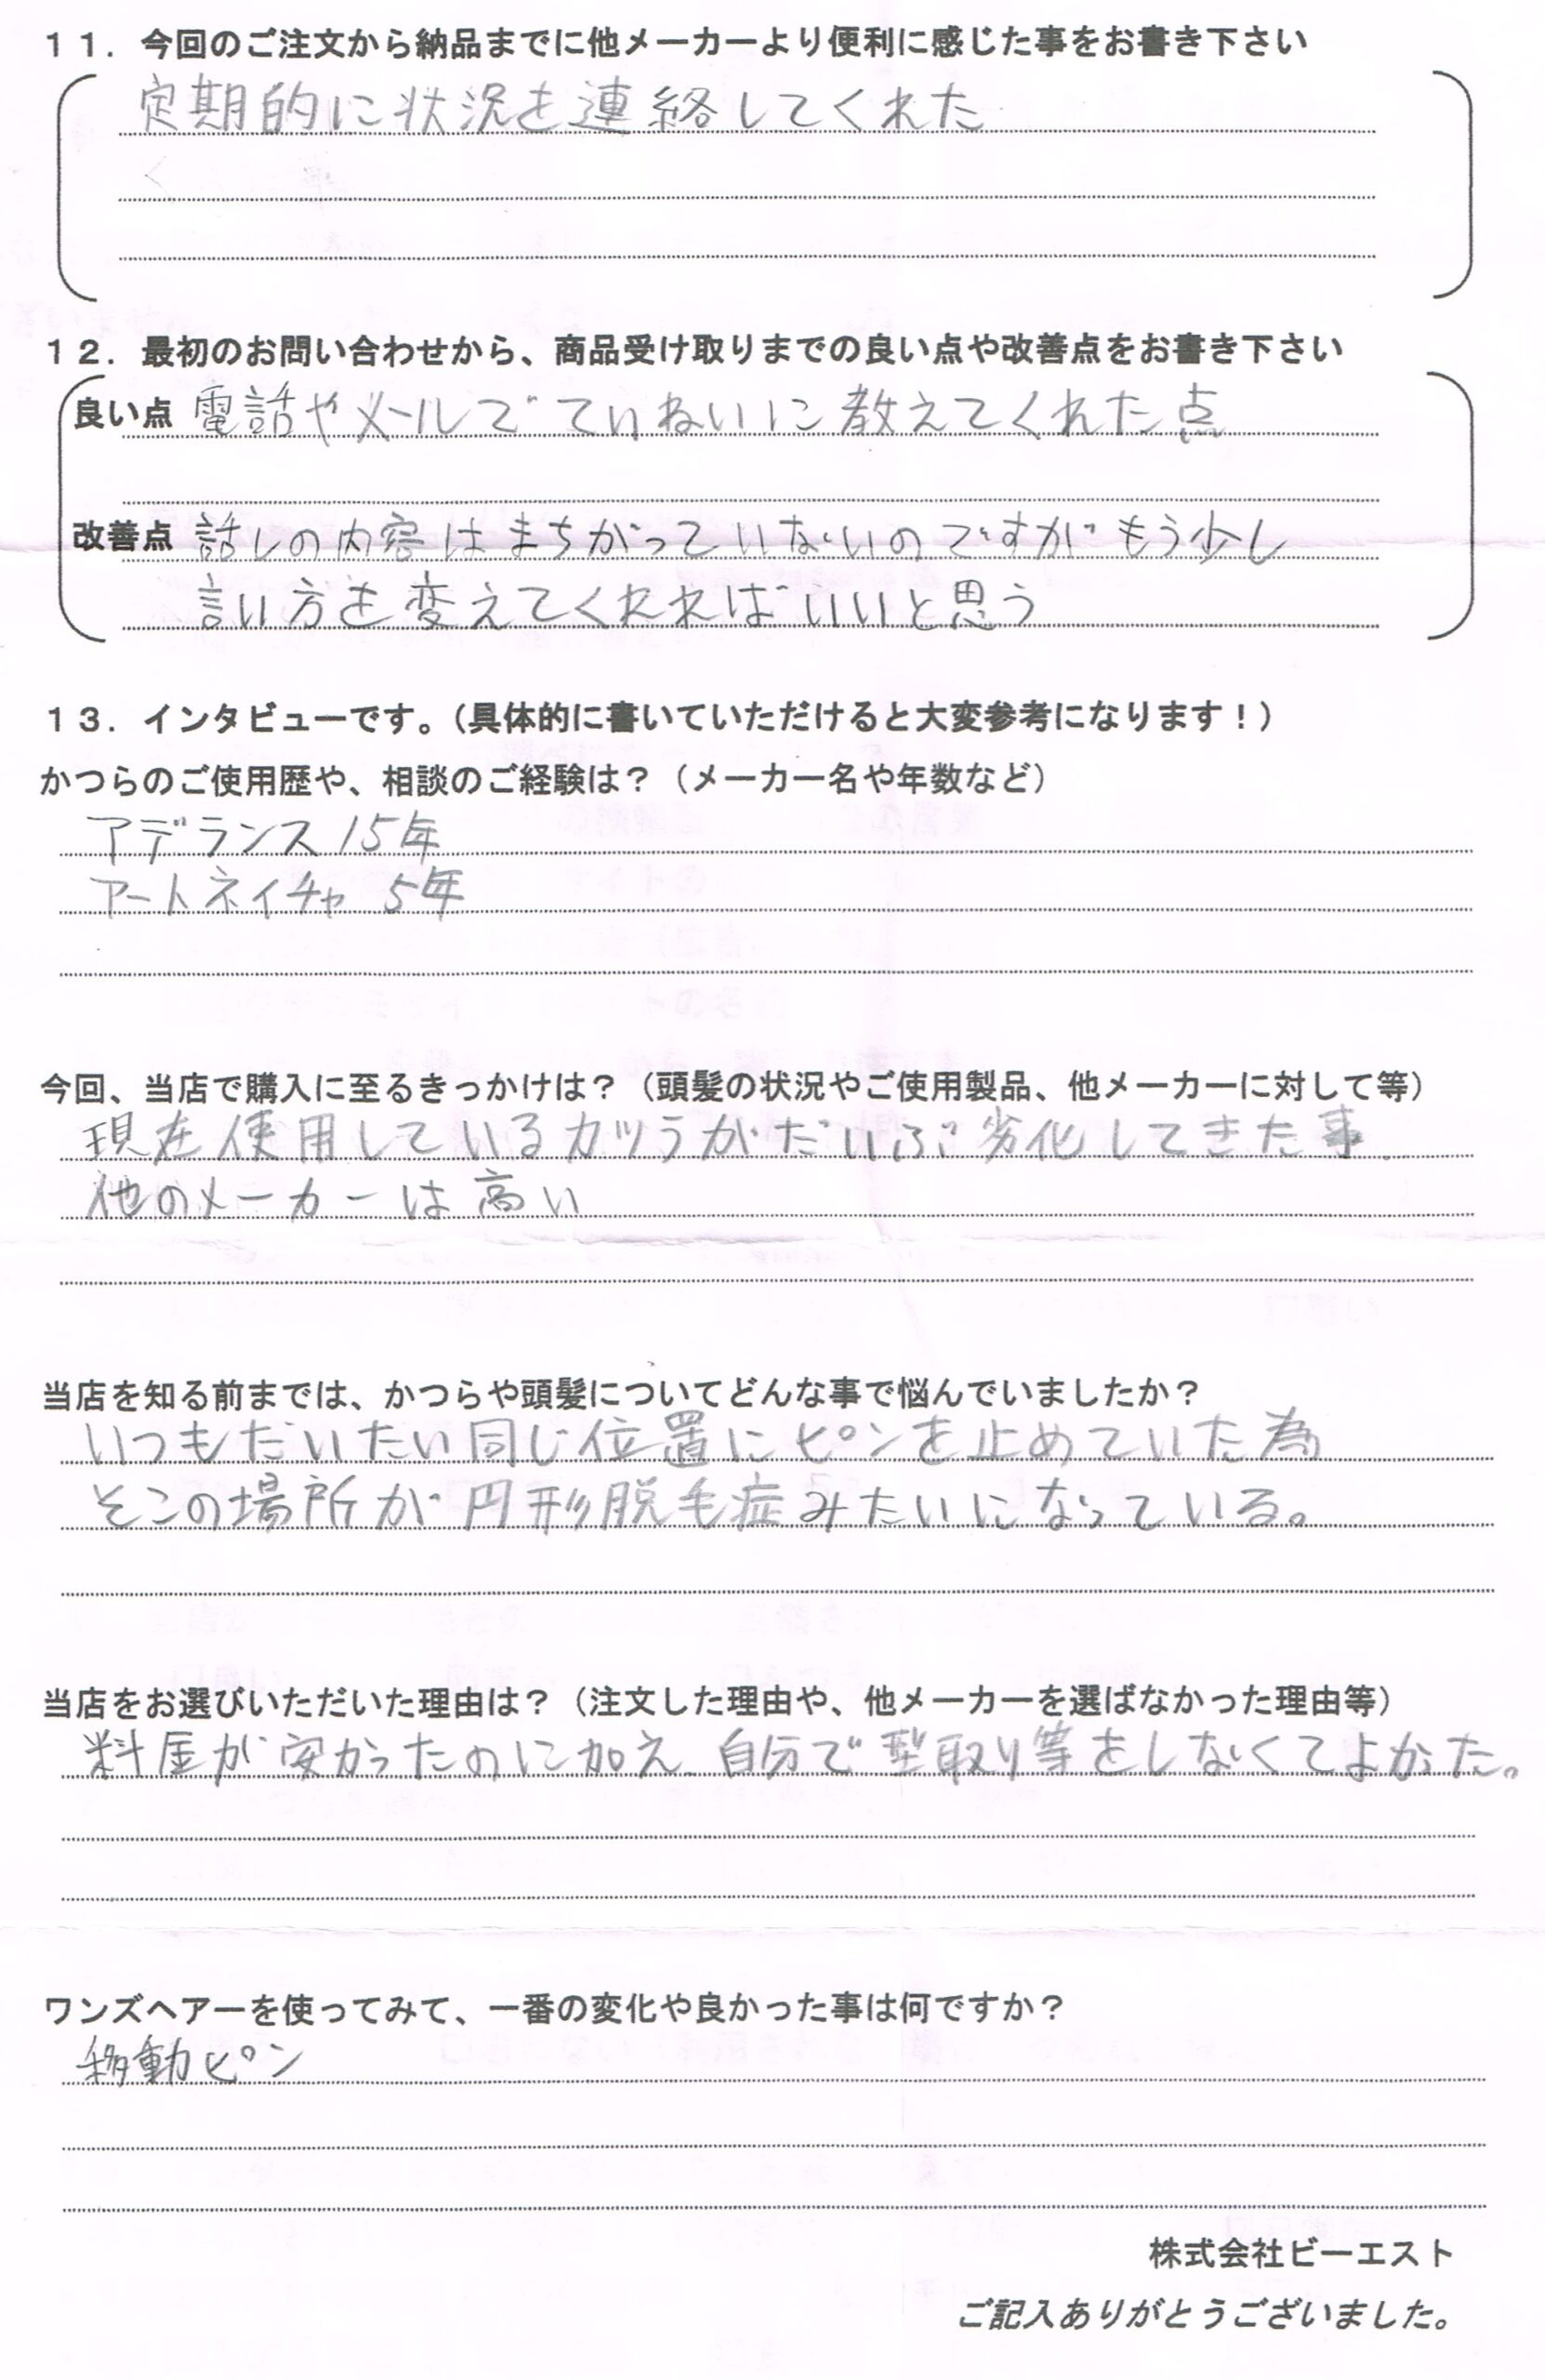 11．今回のご注文から納品までに他メーカーより便利に感じた事をお書き下さい
定期的に状況を連絡してくれた
12．最初のお問い合わせから、商品受け取りまでの良い点や改善点をお書き下さい
良い点 電話やメールでていねいに教えてくれた点
改善点 話しの内容はまちがっていないのですがもう少し
言い方を変えてくれればいいと思う
13．インタビューです。（具体的に書いていただけると大変参考になります！）
かつらのご使用歴や、相談のご経験は？（メーカー名や年数など）
アデランス 15年
アートネイチャ 5年
今回、当店で購入に至るきっかけは？（頭髪の状況やご使用製品、他メーカーに対して等）
現在使用しているカツラがだいぶ劣化してきた事.
他のメーカーは高い
当店を知る前までは、かつらや頭髪についてどんな事で悩んでいましたか？
いつもだいたい同じ位置にピンを止めていた為
そこの場所が円形脱毛症みたいになっている。
当店をお選びいただいた理由は？（注文した理由や、他メーカーを選ばなかった理由等）
料金が安かったのに加え、自分で型取り等をしなくてよかった。
ワンズヘアーを使ってみて、一番の変化や良かった事は何ですか？
移動ピン
株式会社ビーエスト
ご記入ありがとうございました。